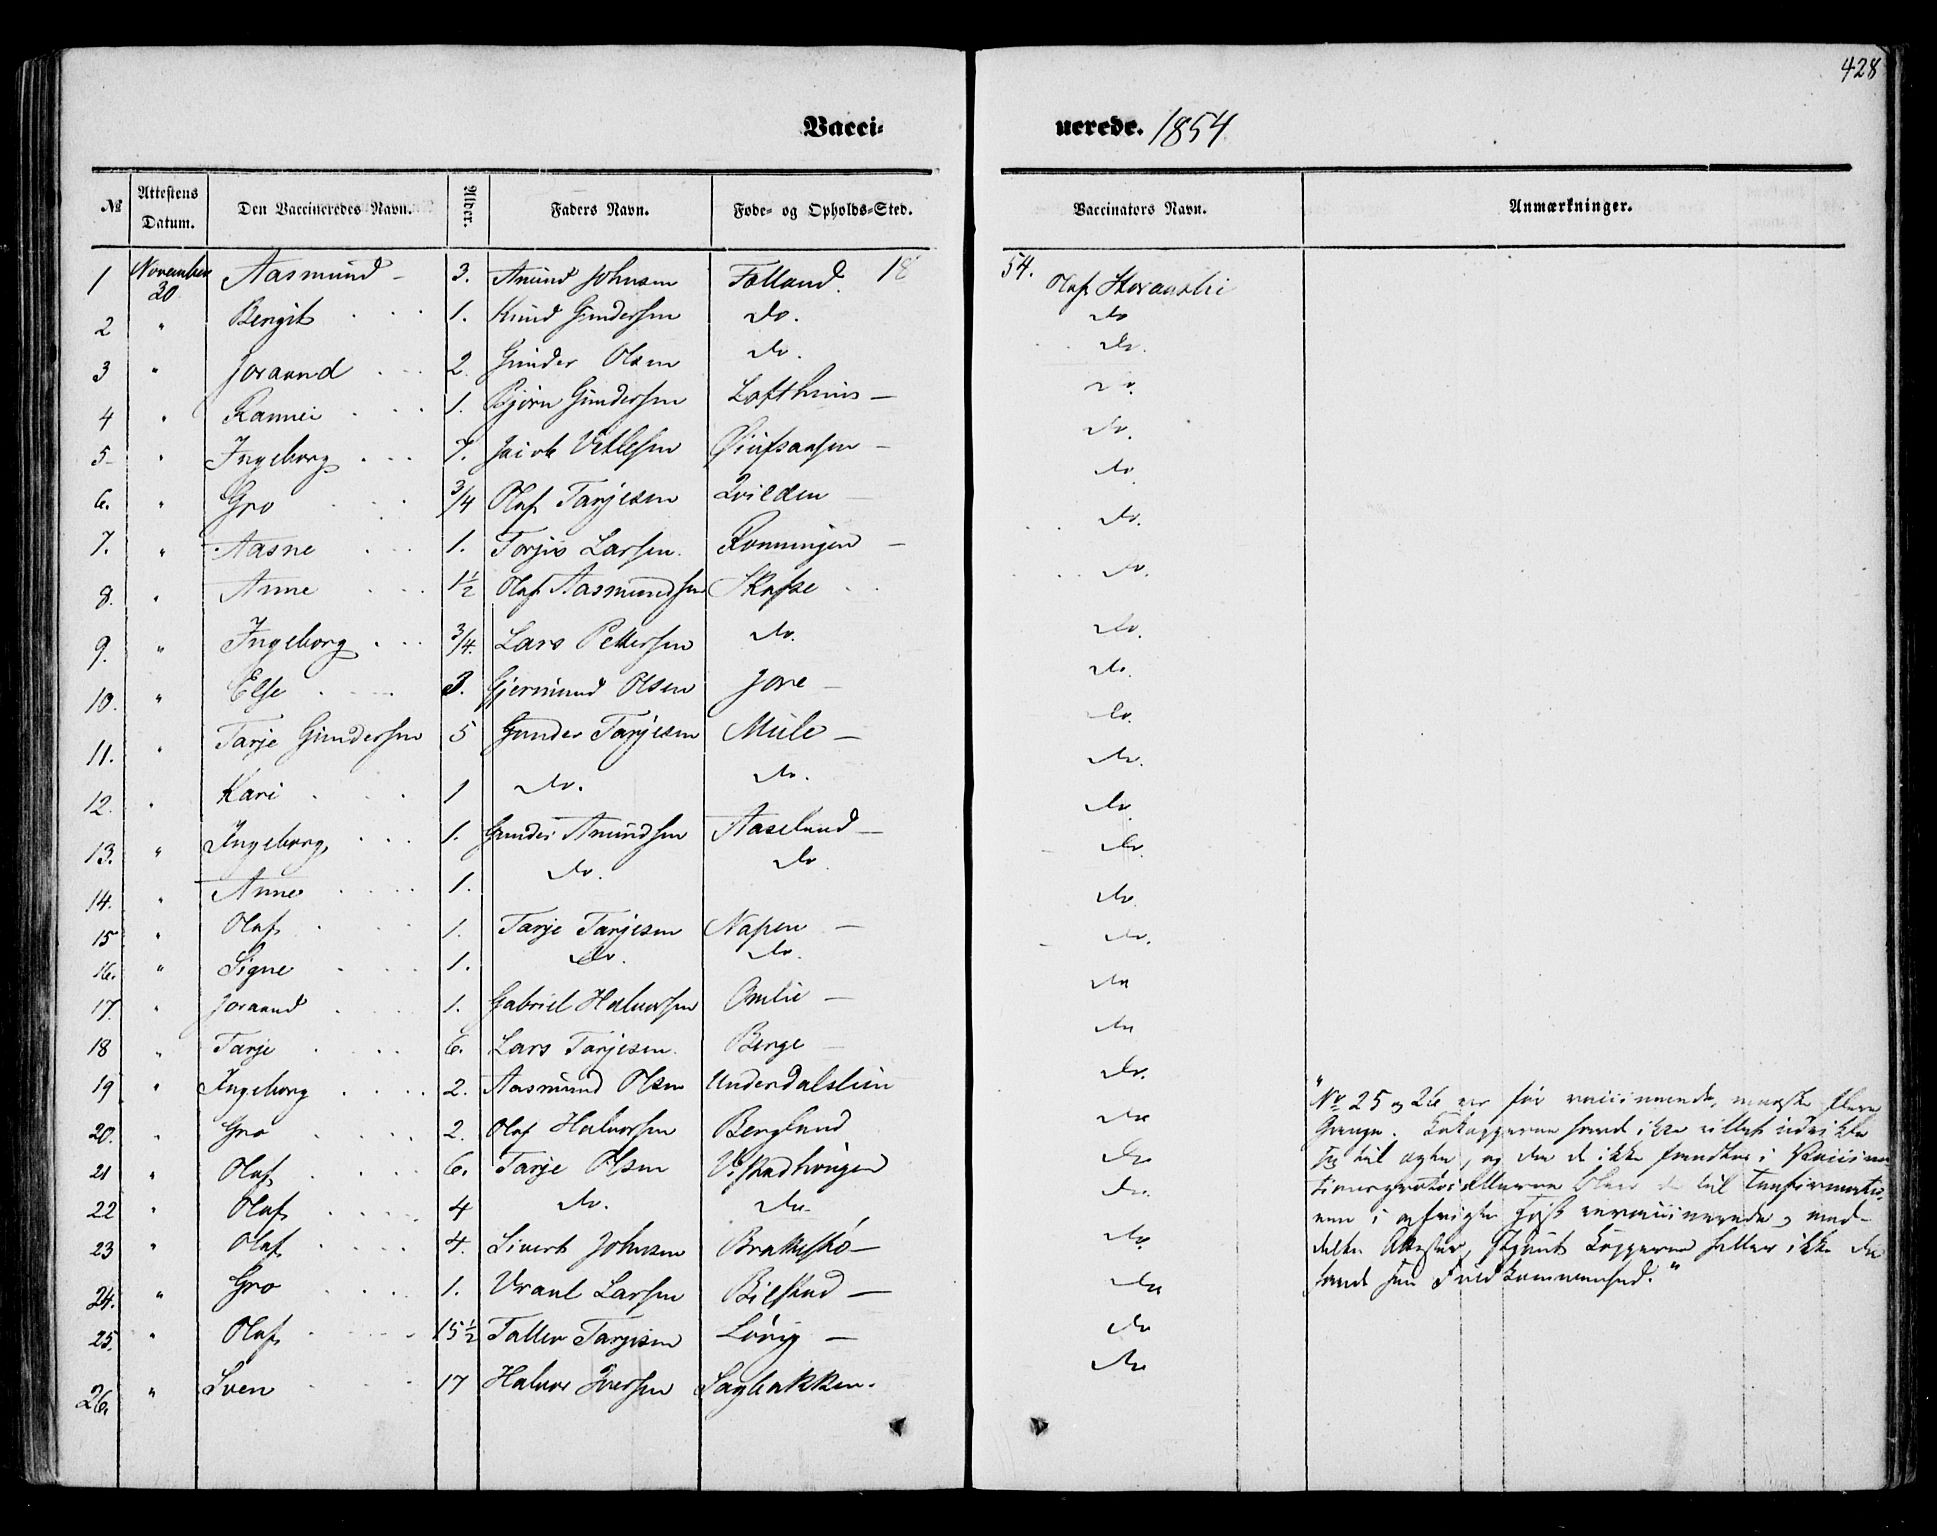 428
Vacci-
nerede. 1854
№ Attestens Datum. Den Vaccineredes Navn. Alder. Faders Navn. Føde- og Opholds-Sted. Vaccinators Navn. Anmærkninger.
1854.
1 November 30 Aasmund 3. Amund Johnsen Følland. Olaf
2 " Bergit 1. Knud Gundersen do. do
3 " Joraand 2. Gunder Olsen do. do.
4 " Rannei 1. Bjørn Gundersen Lofthuus do.
5 " Ingeborg 7. Jacob Vetlesen do.
6. " Gro 3/4 Olaf Tarjesen Qvilden do
7. " Aasne 1. Torjus Larsen. Rønningen do.
8. " Anne 1 1/2 Olaf Aasmundsen Skafse do.
9. " Ingeborg 3/4. Lars Pettersen do. do.
10. " Else 3. Gjermund Olsen Jore do.
11. " Tarje Gundersen 5 Gunder Tarjesen Mule do.
12. " Kari 1 do. do. do.
13. " Ingeborg 1. Gunder Amundsen Aaseland do.
14. " Anne 1. do. do. do.
15 " Olaf 1. Tarje Tarjesen Napen do.
16. " Signe 1. do. do. do.
17. " Joraand 1. Gabriel Halvorsen Omlie do
18 " Tarje 6. Lars Tarjesen. Berge do
19 " Ingeborg 2. Aasmund Olsen Underdalslien do.
20. " Gro 2. Olaf Halvorsen Berglund do
21 " Olaf 6. Tarje Olsen do
22 " Olaf 4 do. do. do.
23 " Olaf 4. Sivert Johnsen Brakeskø do.
24. " Gro 1. Vraal Larsen Bilstad do
25. " Olaf 15 1/2 Tallev Tarjesen do
26. " Sven 17 Halvor Iversen Sagbakken. do
"No 25 og 26 er før vaccinerede, maaske flere
Gange. Kokopperne have ikke villet udvikle
sig til ægte, og da de ikke fandtes i Vaccina-
tionsprotocollerne bleve de til Confirmatio-
nen i afvigte Høst revaccinerede, med-
delte Attester, skjønt Kopperne heller ikke da
vare fuldkommen."